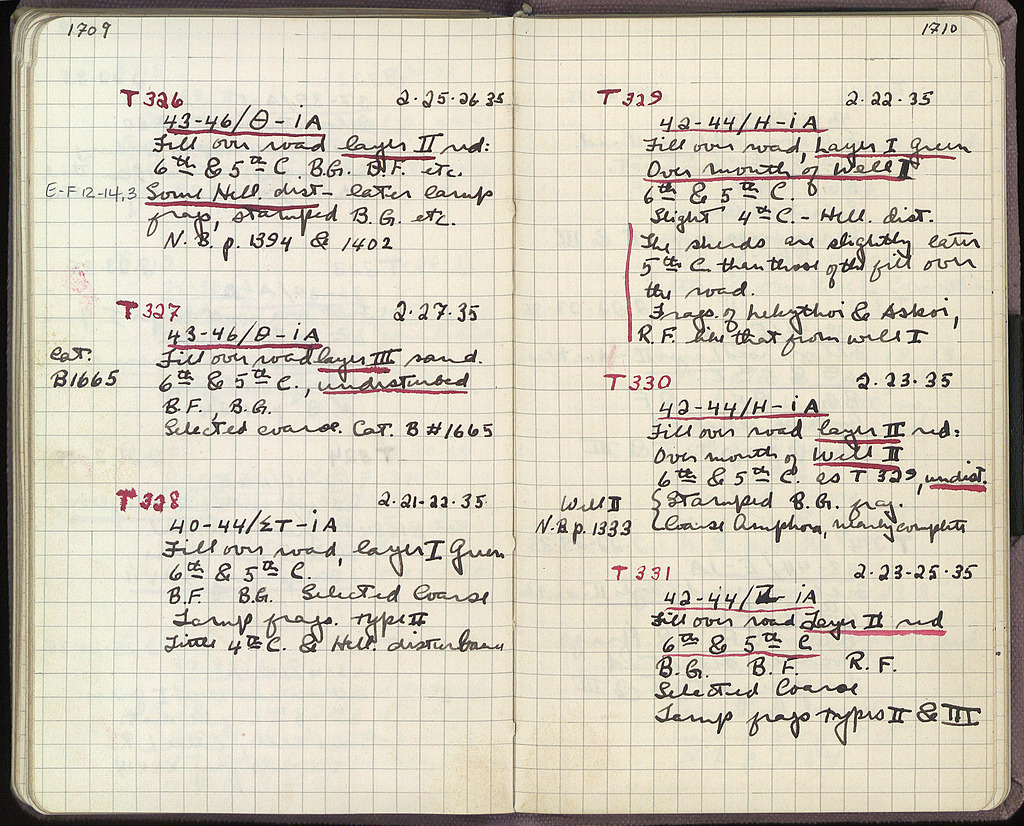 1709
T 326 2·25·26 35
43-46/Θ-iA
Fill over road layer II red:
6th & 5th C. B.G. B.F. etc.
E-F 12-14,3 Some Hell. dist- later lamp
frag, stamped B.G. etc.
N.B. p. 1394 & 1402
T 327 2·27·35
43-46/Θ-iA
Cat. Fill over road layer III sand.
B1665 6th & 5th C., undisturbed
B.F., B.G.
Selected coarse. Cat. B #1665
T 328 2·21-22·35
40-44/ΣT-iA
Fill over road, layer I Green
6th & 5th C.
B.F. B.G. Selected Coarse
Lamp frags. Type II
Little 4th C. & Hell. disturbance
1710
T 329 2·22·35
42-44/H-iA
Fill over road, Layer I Green
Over mouth of Well II
6th & 5th C.
Slight 4th C. - Hell. dist.
The sherds are slightly later
5th C than those of the fill over
the road.
Frags. of Lekythoi & Askoi,
R.F. like that from well I
T 330 2·23·35
42-44/H-iA
Fill over road layer II red:
Over mouth of Well II
6th & 5th C. as T 329, undist.
Well II { Stamped B.G. frag.
N.B. p. 1333 Coarse Amphora, nearly complete
T 331 2·23-25·35
42-44/Z-iA
Fill over road Layer II red
6th & 5th C
B.G. B.F. R.F.
Selected Coarse
Lamp frags types II & III